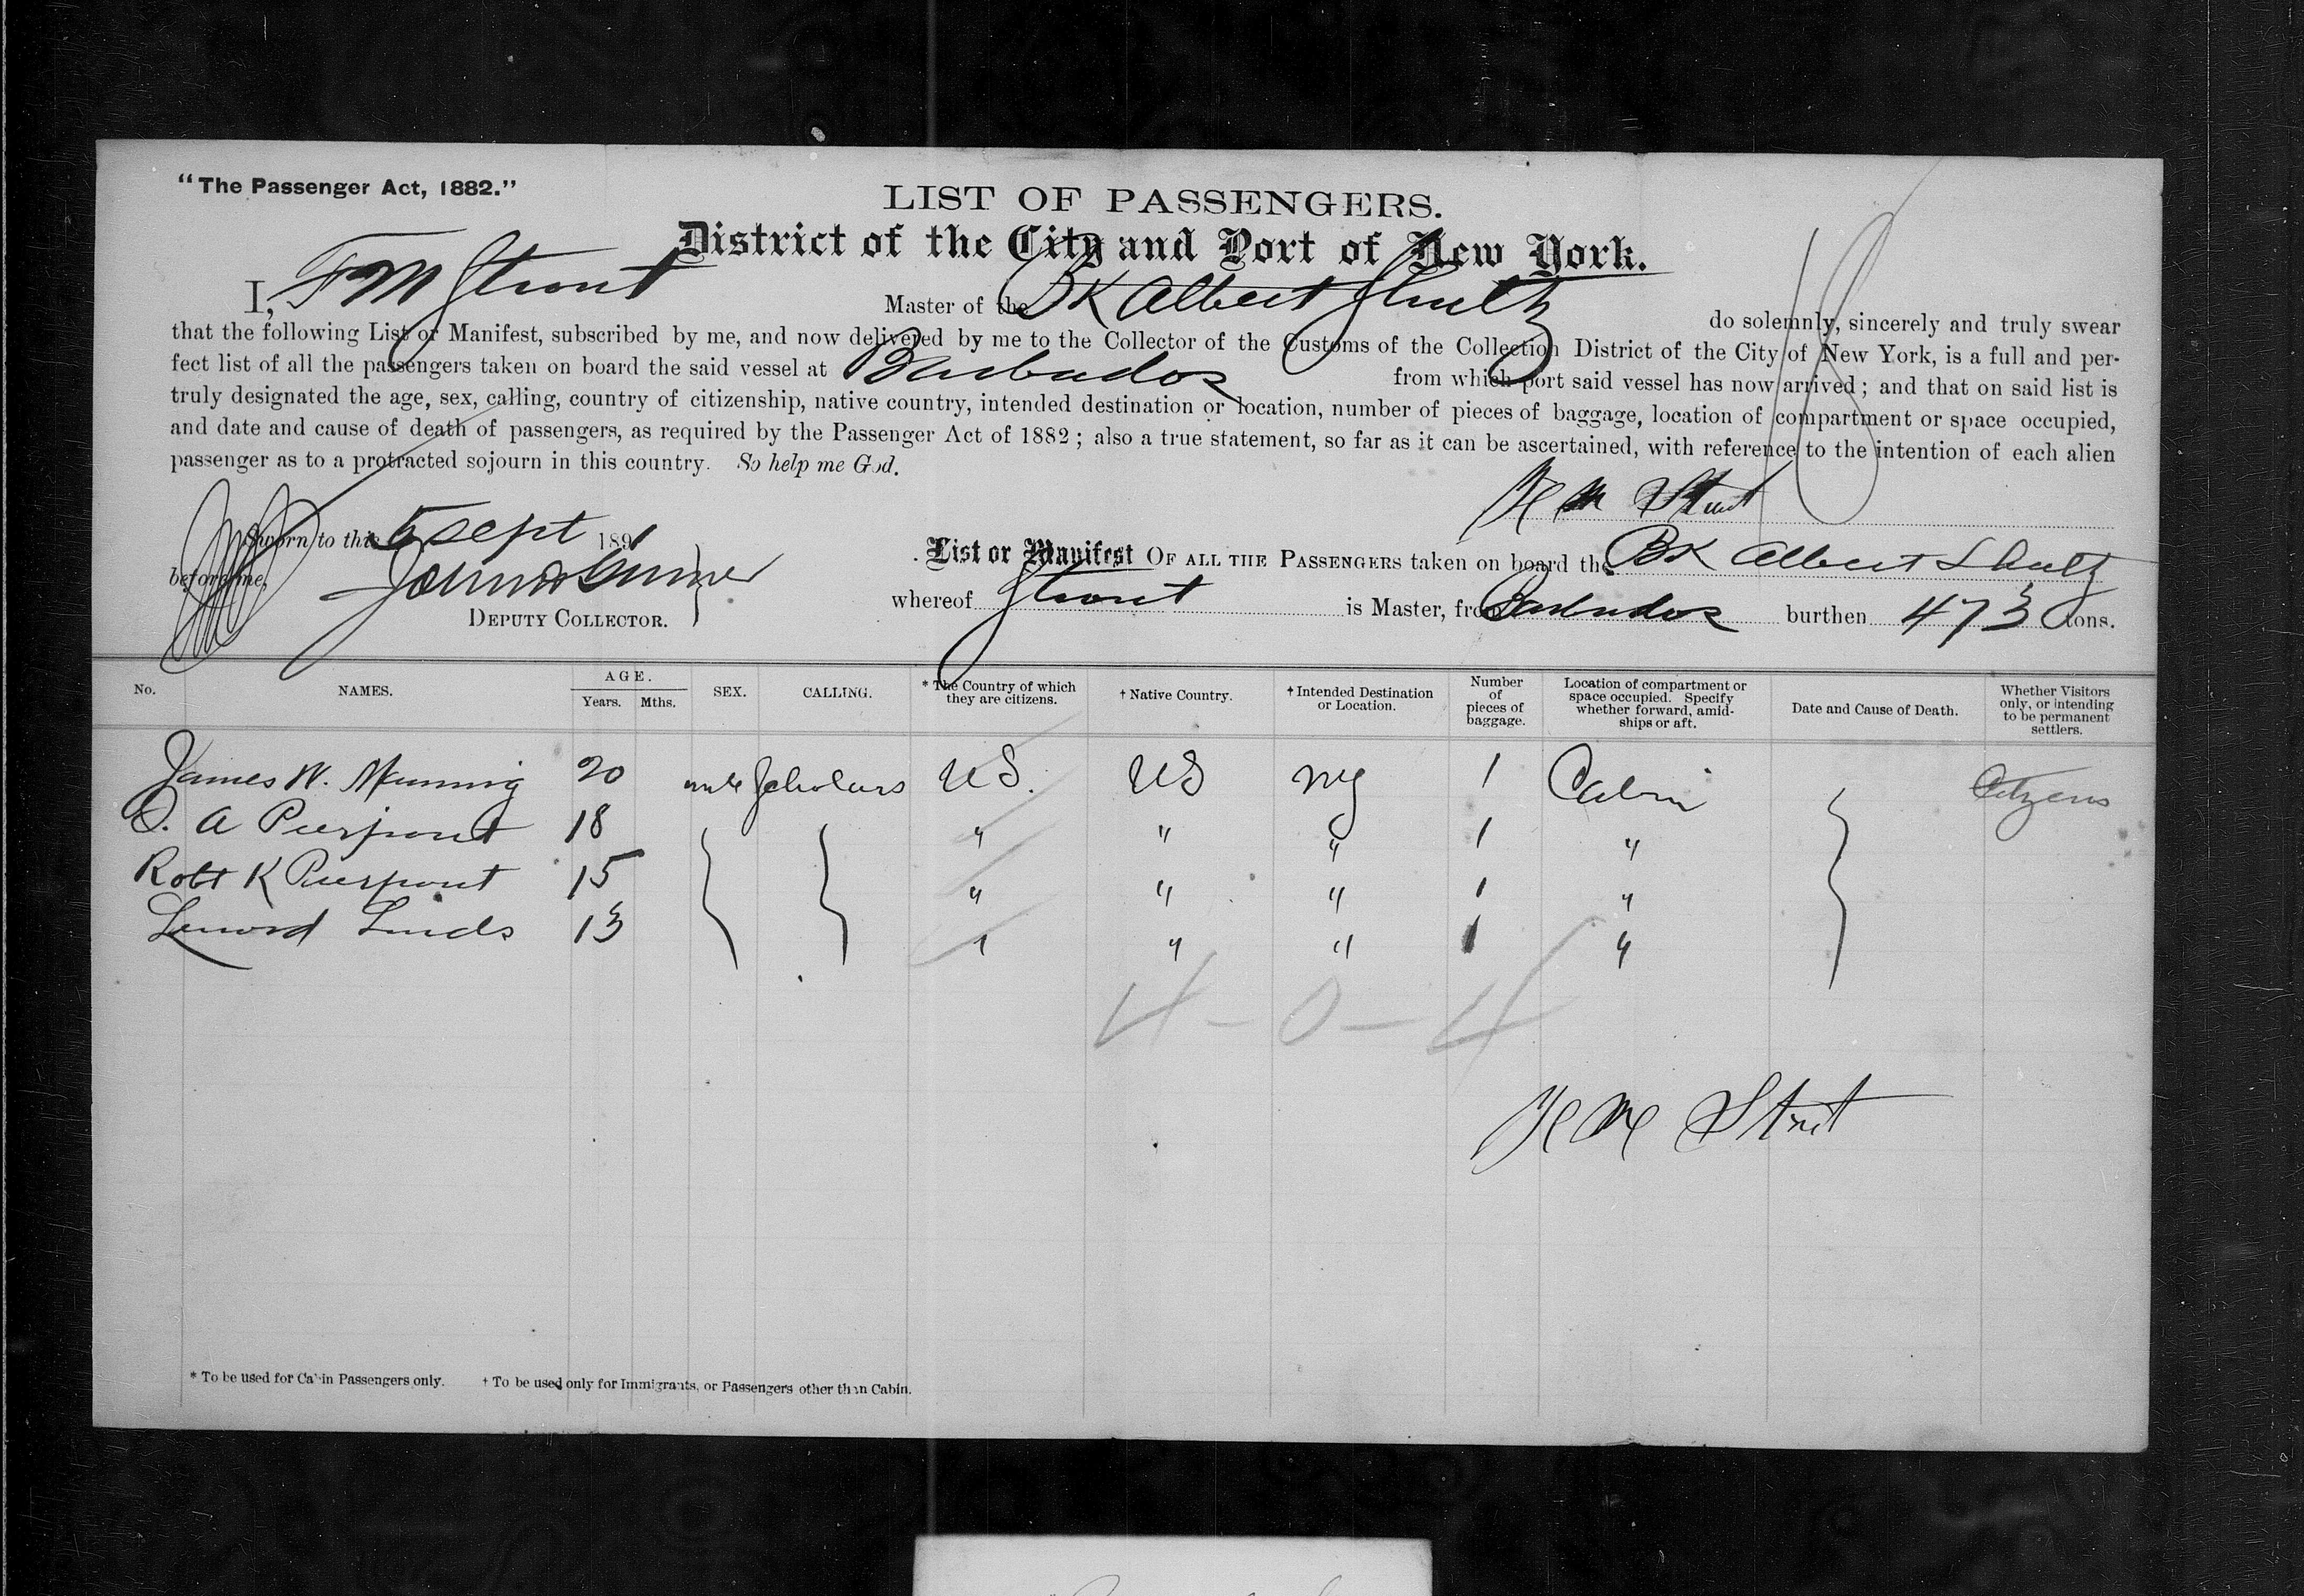 "The Passenger Act, 1882."
LIST OF PASSENGERS.
District of the City and Port of New York.
I, F M Strout Master of the Bk Albert Shultz do solemnly, sincerely and truly swear
that the following List or Manifest, subscribed by me, and now delivered by me to the Collector of the Customs of the Collection District of the City of New York, is a full and per-
fect list of all the passengers taken on board the said vessel at Barbados from which port said vessel has now arrived; and that on said list is
truly designated the age, sex, calling, country of citizenship, native country, intended destination or location, number of pieces of baggage, location of compartment or space occupied,
and date and cause of death of passengers, as required by the Passenger Act of 1882; also a true statement, so far as it can be ascertained, with reference to the intention of each alien
passenger as to a protracted sojourn in this country. So help me God.
Sworn to this 5 Sept 1891
before me,
DEPUTY COLLECTOR.
List or Manifest OF ALL THE PASSENGERS taken on board the Bk Albert Shultz
whereof Strout is Master, from Barbados burthen 473 tons.
No. NAMES. AGE. Years. Mths. SEX. CALLING. * The Country of which they are citizens. † Native Country. † Intended Destination or Location. Number of pieces of baggage. Location of compartment or space occupied. Specify whether forward, amid-ships or aft. Date and Cause of Death. Whether Visitors only, or intending to be permanent settlers.
James W. Manning 20 male Scholars US. US NY 1 Cabin Citizens
A Pierpont 18 " " " 1 "
Robt K Pierpont 15 " " " 1 "
13 " " " 1 "
4-0-4
* To be used for Cabin Passengers only. † To be used only for Immigrants, or Passengers other than Cabin.